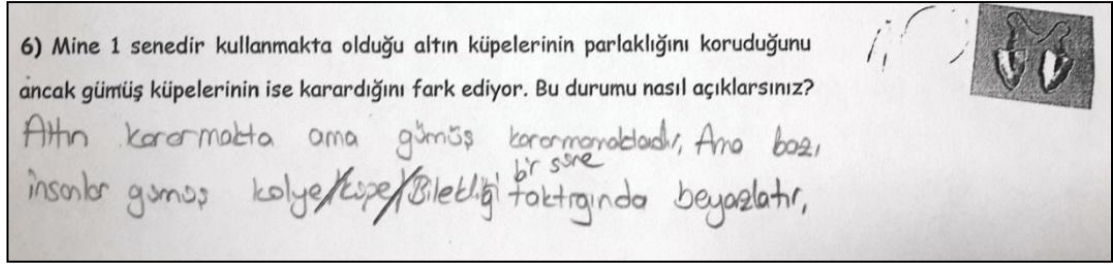 6) Mine 1 senedir kullanmakta olduğu altın küpelerinin parlaklığını koruduğunu
ancak gümüş küpelerinin ise karardığını fark ediyor. Bu durumu nasıl açıklarsınız?
Altın kararmakta ama gümüş kararmamaktadır, Ama bazı
bir süre
insanlar gümüş kolye/küpe/Bilekliği taktıgında beyazlatır,